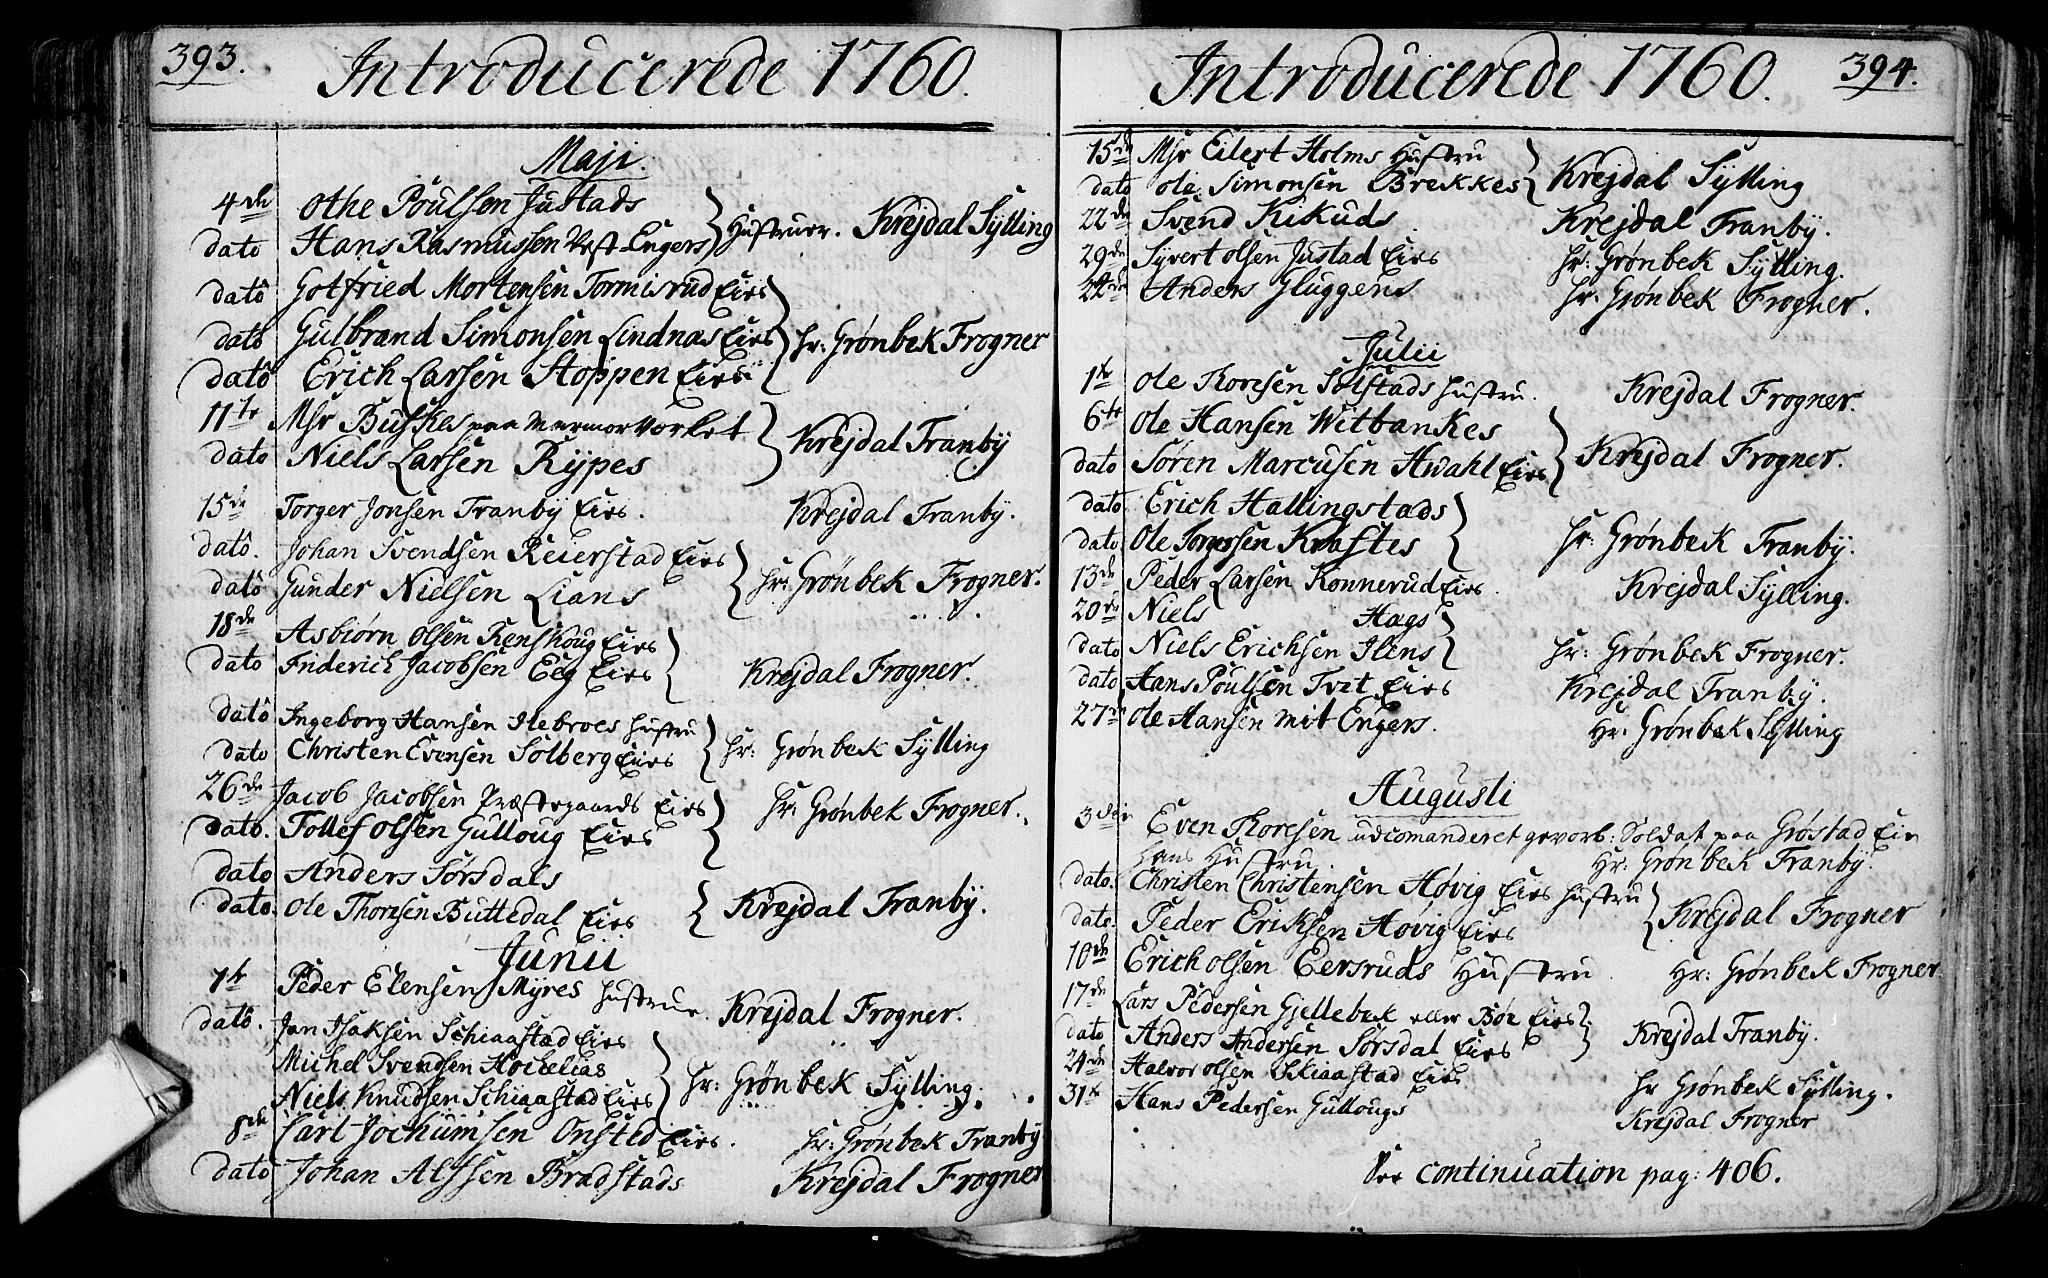 393.
Introducerede 1760.
Maji.
4de Othe Poulsen Justads
dato Hans Rasmussen Vest-Engers } Hustruer. Krejdal Sylling
dato Gotfried Mortensen Tormisrud Eies
dato Gulbrand Simonsen Lindnæs Eies } hr: Grønbek Frogner
dato Erich Larsen Stoppen Eies
11te Msr Buskes paa Marmorverket
dato Niels Larsen Rypes } Krejdal Franby
15de Torger Jonsen Franby Eies. Krejdal Franby.
dato. Johan Svendsen Reierstad Eies
dato Gunder Nielsen Lians } hr: Grønbek Frogner.
18de Asbiørn Olsen Renskoug Eies
dato Friderich Jacobsen Eeg Eies } Krejdal Frogner.
dato Ingeborg Hansen Ilebroes hustru
dato Christen Evensen Solberg Eies } hr: Grønbek Sylling
26de Jacob Jacobsen Præstegaards Eies
dato. Tollef Olsen Gulloug Eies } hr: Grønbek Frogner.
dato Anders Sørsdals
dato. Ole Thoresen Buttedal Eies { Krejdal Franby.
Junii
1te Peder Elensen Myres hustrue Krejdal Frogner.
dato. Jan Isaksen Schiaastad Eies
Michel Svendsen
Niels Knudsen Schiaastad Eies } hr: Grønbek Sylling.
8de Carl Jochumsen Onsted Eies. hr: Grønbek Franby
dato Johan Alfsen Bradstads Krejdal Frogner
394.
Introducerede 1760.
15de Msr Eilert Holms Hustru
dato Ole Simonsen Brekkes } Krejdal Sylling
22de Svend Kikuds Krejdal Franby.
29de Syvert Olsen Justad Eies hr: Grønbek Sylling.
Anders Gluggens hr: Grønbek Frogner.
Julii
1te Ole Thoresen Solstads hustru. Krejdal Frogner.
6te Ole Hansen Witbankes
dato Søren Marcusen Hwahl Eies } Krejdal Frogner.
dato Erich Hallingstads
dato Ole Torgersen Kraftes } hr: Grønbek Franby.
13de Peder Larsen Konnerud Eies. Krejdal Sylling.
20de Niels Hags
dato Niels Erichsen Ilens } hr: Grønbek Frogner.
dato Hans Poulsen Tvet Eies Krejdal Franby.
27de Ole Hansen Mit Engers. Hr: Grønbek Sylling
Augusti
3die Even Thoresen udcomanderet gevorb: Soldat paa Grøstad Eie
hans Hustru. Hr: Grønbek Franby.
dato. Christen Christensen Høvig Eies hustru
dato. Peder Eriksen Høvig Eies } Krejdal Frogner
10de Erich Olsen Eersruds Hustru. Hr: Grønbek Frogner
17de Lars Pedersen Gjellebek eller Bøe Eies
dato Anders Andersen Sørsdal Eies } Krejdal Franby.
24de Halvor Olsen Skiaastad Eies hr Grønbek Sylling.
31te Hans Pedersen Gullougs Krejdal Frogner
See continuation pag: 406.